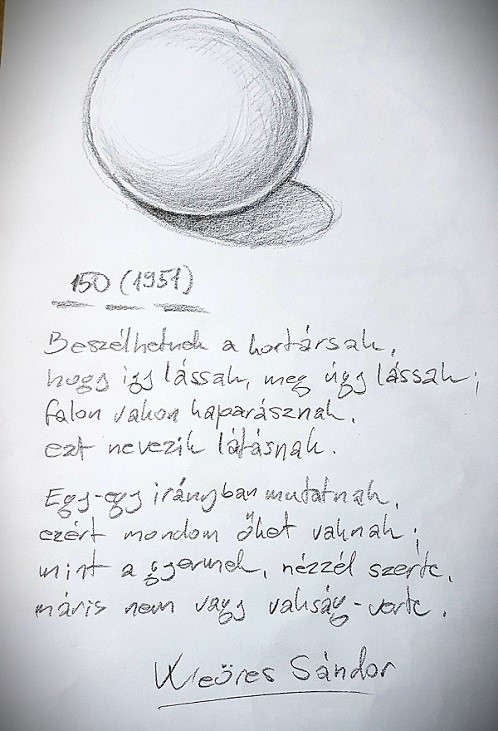 150 (1951)
Beszélhetnek a kortársak,
hogy így lássak, meg úgy lássak;
falon vakon kaparásznak,
ezt nevezik látásnak.
Egy-egy irányban mutatnak,
ezért mondom őket vaknak;
mint a gyermek, nézzél szerte,
máris nem vagy vakság-verte.
Weöres Sándor